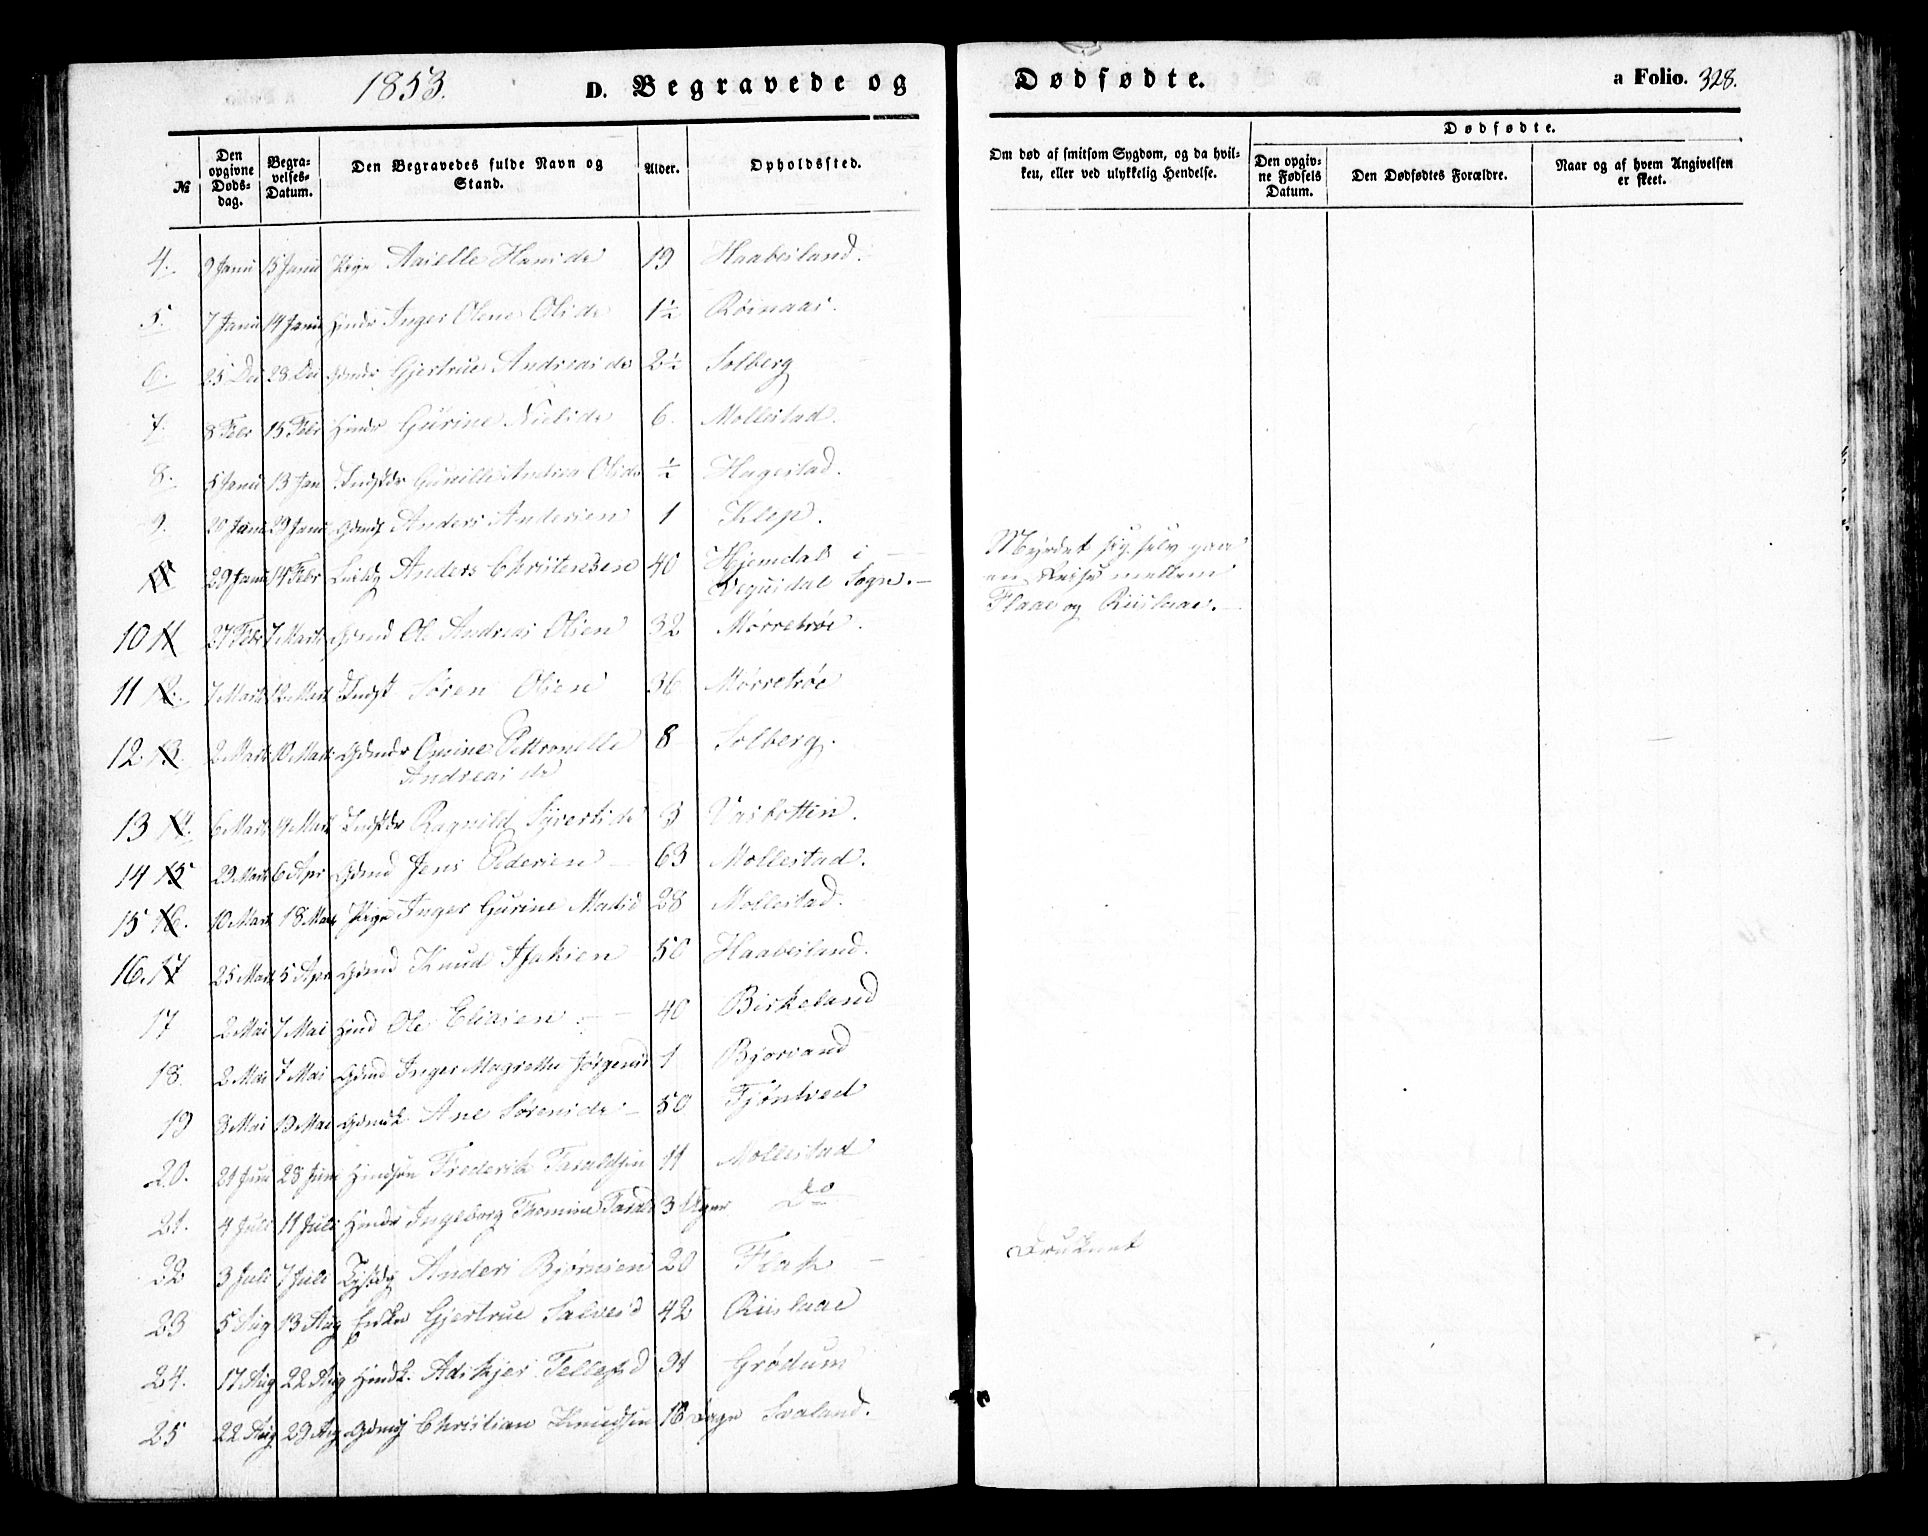 1853. D. Begravede og
Dødfødte. a Folio. 328.
№
Den opgivne Døds-dag.
Begra-velses-Datum.
Den Begravedes fulde Navn og Stand.
Alder.
Opholdssted.
Om død af smitsom Sygdom, og da hvil-
ken, eller ved ulykkelig Hendelse.
Dødfødte.
Den opgiv-ne Fødsels Datum.
Den Dødfødtes Forældre.
Naar og af hvem Angivelsen er skeet.
4. 9 Janu 15 Janu Pige Hansdr 19 Haabesland.
5. 7 Janu 14 Janu Hmdr Inger Olene Olsdr 1½ Röinaas.
6. 25 Dec 28 Dec Gmdr Gjertrue Andreasdr 2½ Solberg
7. 8 Febr 15 Febr Hmdr Gurine Nielsdr 6. Mollestad.
8. 5 Janu 13 Jan Indstdr Gunille Andrea Olsdr ½ Hagestad.
9. 20 Janu 29 Janu Gdmds Anders Andersen 1 Klep.
29 Janu 14 Febr Anders Christensen 40 Hjemdal i
Vegusdal Sogn.
Myrdet sig selv paa
en Reise mellem
Flaae og Riislaae.
10 11 27 Febr 7 Marts Gdmd Ole Andreas Olsen 32 Mørretrøe.
11 12. 7 Marts 12 Marts Indst Søren Olsen 36 Mørretrøe
12. 13. 2 Marts 10 Marts Gdmdr Pettronelle 8 Solberg.
Andreasdr
13 14. 6 Marts Marts Indstdr Ragnild Syvertsdr 3 Vasbotten.
14 15 29 Marts 6 Apr Gdmd Jens Pedersen 63 Mollestad.
15 16. 10 Marts 18 Marts Pige Inger Gurine Madsd 28 Mollestad.
16. 17 25 Marts 5 Apr Gdmd Knud 50 Haabesland.
17 2 Mai 7 Mai Hmd Ole Eliasen 40 Birkeland
18. 2 Mai 7 Mai Gdmd Inger Magrethe Jørgensd 1 Bjorvand
19 8 Mai 13 Mai Gdmdk. Ane Sørensdr 50 Fjöntved
20. 21 Juni 28 Juni Hmdsön Frederik Taraldsen 11 Mollestad
21. 4 Juli 11 Juli Hmdr Ingeborg Thomine Taralds 3 Uger Do
22 3 Juli 7 Juli Anders Bjørnsen 20 Flak
Druknet
23 5 Aug 13 Aug Enke Gjertrue Salvesd 42 Riislaae
24. 17 Aug 22 Aug Hmdk. Tellefsd 91 Grödum
25 22 Aug 29 Aug Gdmds Christian Knudsen 16 Dage Svaland.